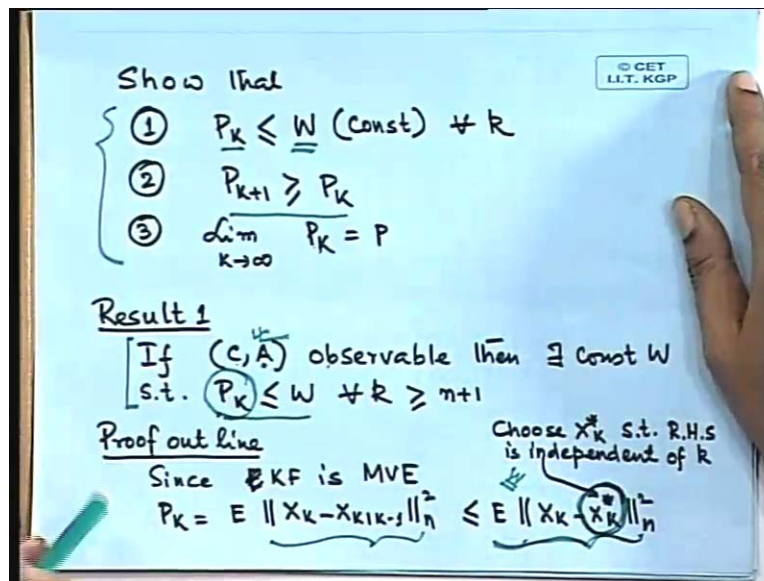 © CET
I.I.T. KGP
Show that
① P_K ≤ W (Const) ∀ k
② P_{K+1} ≥ P_K
③ Lim_{K→∞} P_K = P
Result 1
If (C, A) observable then ∃ const W
s.t. P_K ≤ W ∀ k ≥ n+1
Proof out line
Choose X*_K s.t. R.H.S
is independent of k
Since KF is MVE
P_K = E ‖X_K - X_{K|K-1}‖²_n ≤ E ‖X_K - X*_K‖²_n